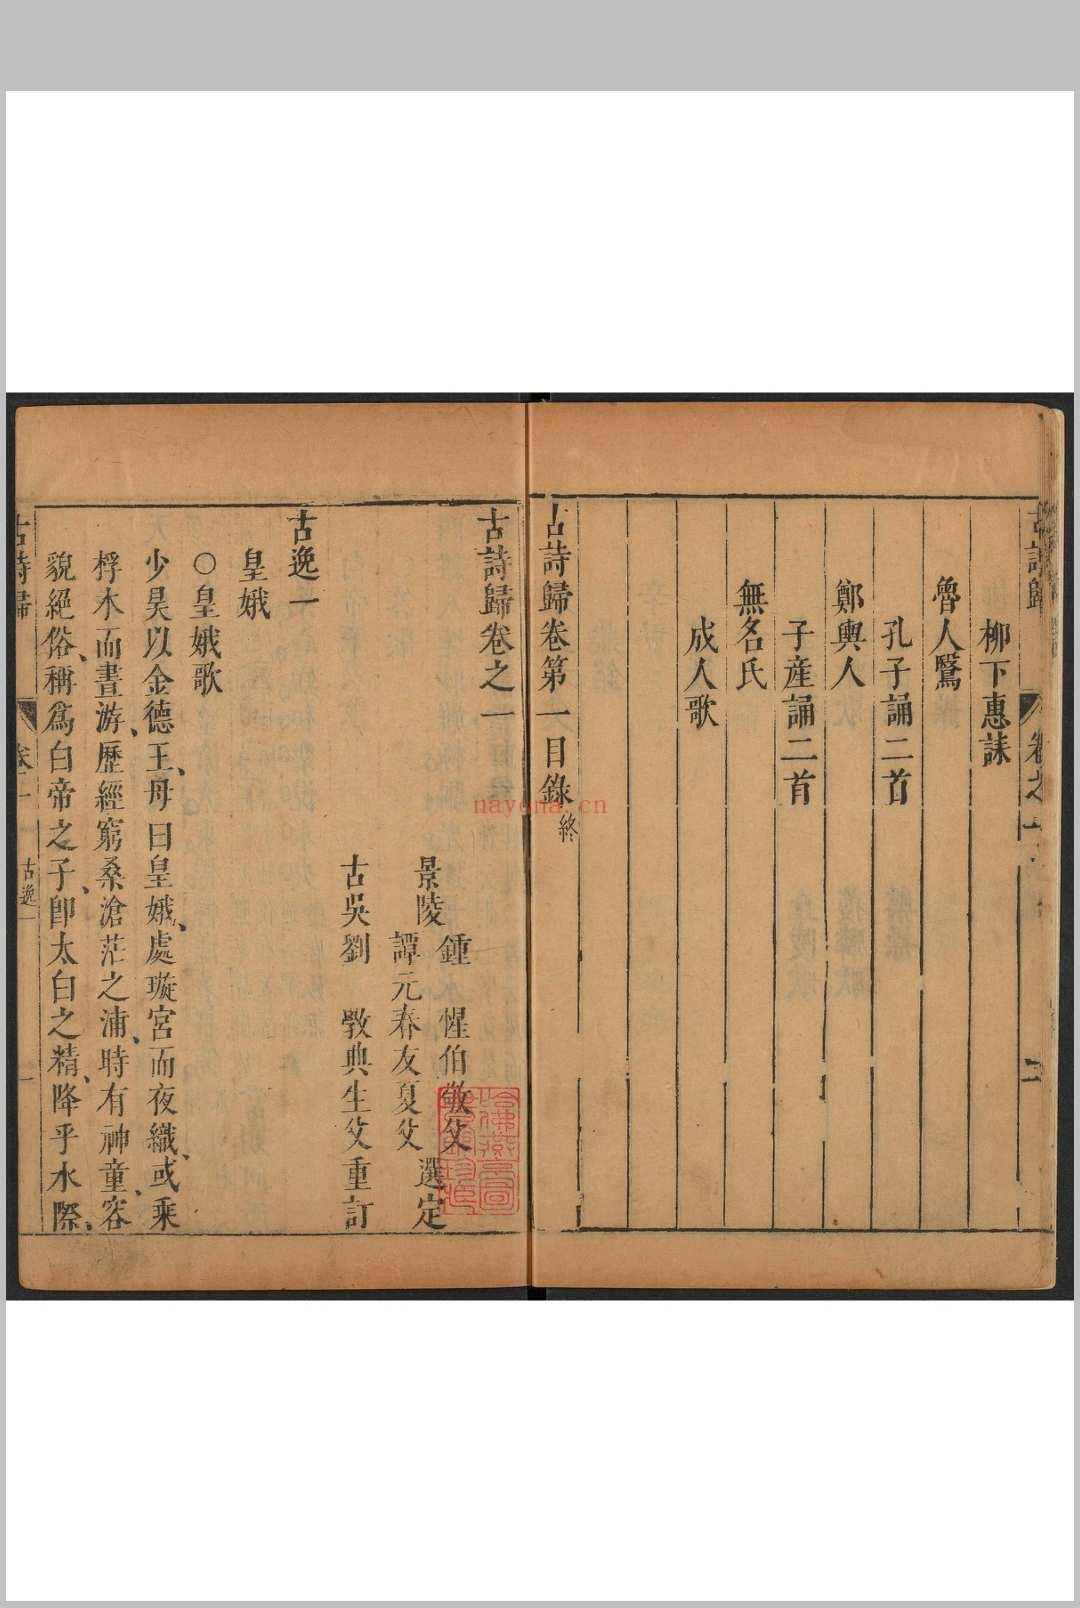 柳下惠誄
魯人鷖
孔子誦二首
鄭輿人
子産誦二首
無名氏
成人歌
古詩歸卷第一目錄終
古詩歸卷之一
景陵
鍾　惺伯敬父
譚元春友夏父
選定
古吳劉　斆典生父重訂
古逸一
皇娥
○皇娥歌
少昊以金德王、母曰皇娥、處璇宮而夜織、或乘
桴木而晝游、歷經窮桑滄茫之浦、時有神童、容
貌絕俗、稱爲白帝之子、卽太白之精、降乎水際、
古詩歸
卷之一
古逸一
一
nayona.cn